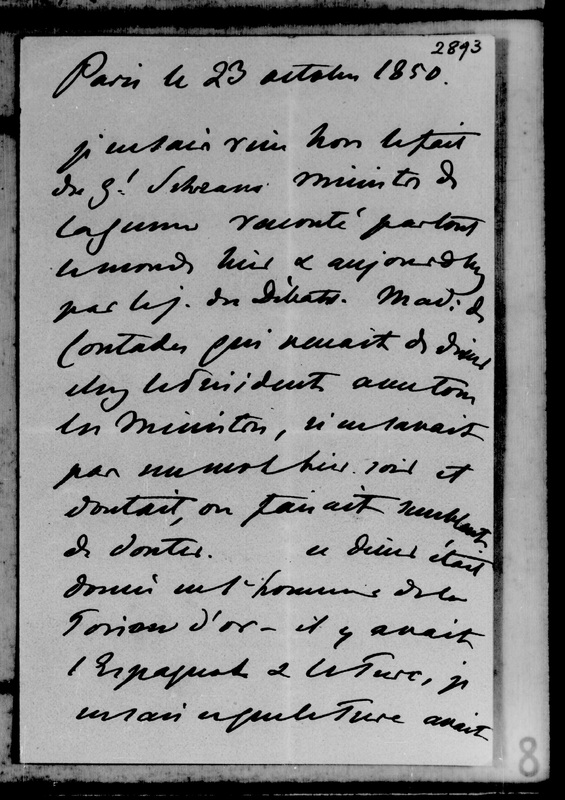 2893
Paris le 23 octobre 1850.
je ne sais rien hors le fait
du gl Schramm ministre de
la guerre raconté par tout
le monde hier & aujourd'hui
par le j. des Débats. Mad. de
Contades qui venait de diner
chez le Président avec tous
les Ministres, n'en savait
pas un mot hier soir et
doutait, ou faisait semblant
de douter. ce diner était
donné en l'honneur de la
Toison d'or - il y avait
l'Espagnol & le Turc, je
ne sais ce que le Turc avait
8